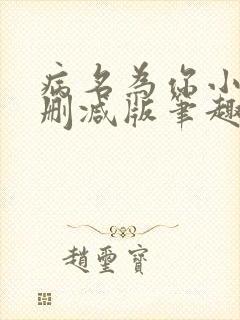 病名为你小
删减版笔趣
趙璽寶